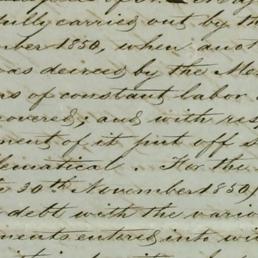 fully carried out by th
mber 1850, when anot
as desired by the Me
as of constant labor
covered; and with res
ment of it put off s
lematical. For the
30th November 1850,
debt with the vario
ments entered into wi